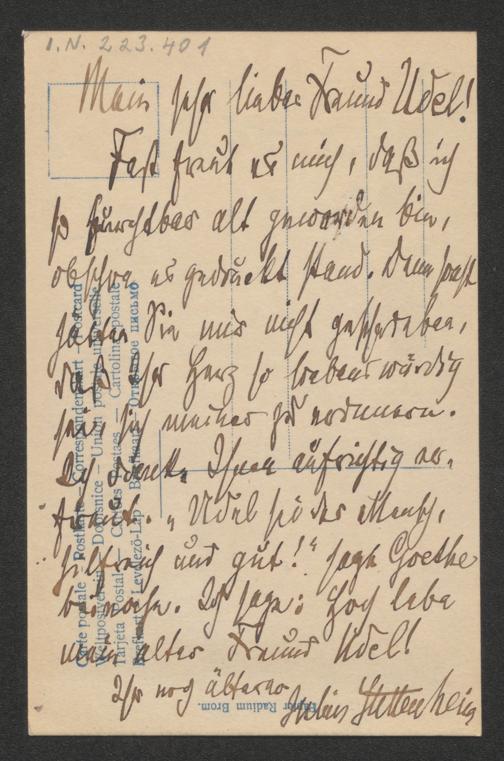 I.N. 223.401
Mein sehr lieber Freund Udel!
Fast freut es mich, daß ich
so furchtbar alt geworden bin,
obschon es gedruckt stand. Denn sonst
hätten Sie mir nicht geschrieben,
daß Ihr Herz so liebenswürdig
sei, sich meiner zu erinnern.
Ich danke Ihnen aufrichtig er-
freut. „Udel sei der Mensch,
hilfreich und gut!“ sagt Goethe
beinahe. Ich sage: Hoch lebe
mein alter Freund Udel!
Ihr noch älterer
Julius Stettenheim
Carte postale — Postkarte — Correspondenzkarte — Postcard
Weltpostverein — Dopisnice — Union postale universelle
Tarjeta Postal — Cartes Postaes — Cartolina postale
Brefkaart — Levelezö-Lap — Brefkaart — Открытое письмо
Radium Brom.